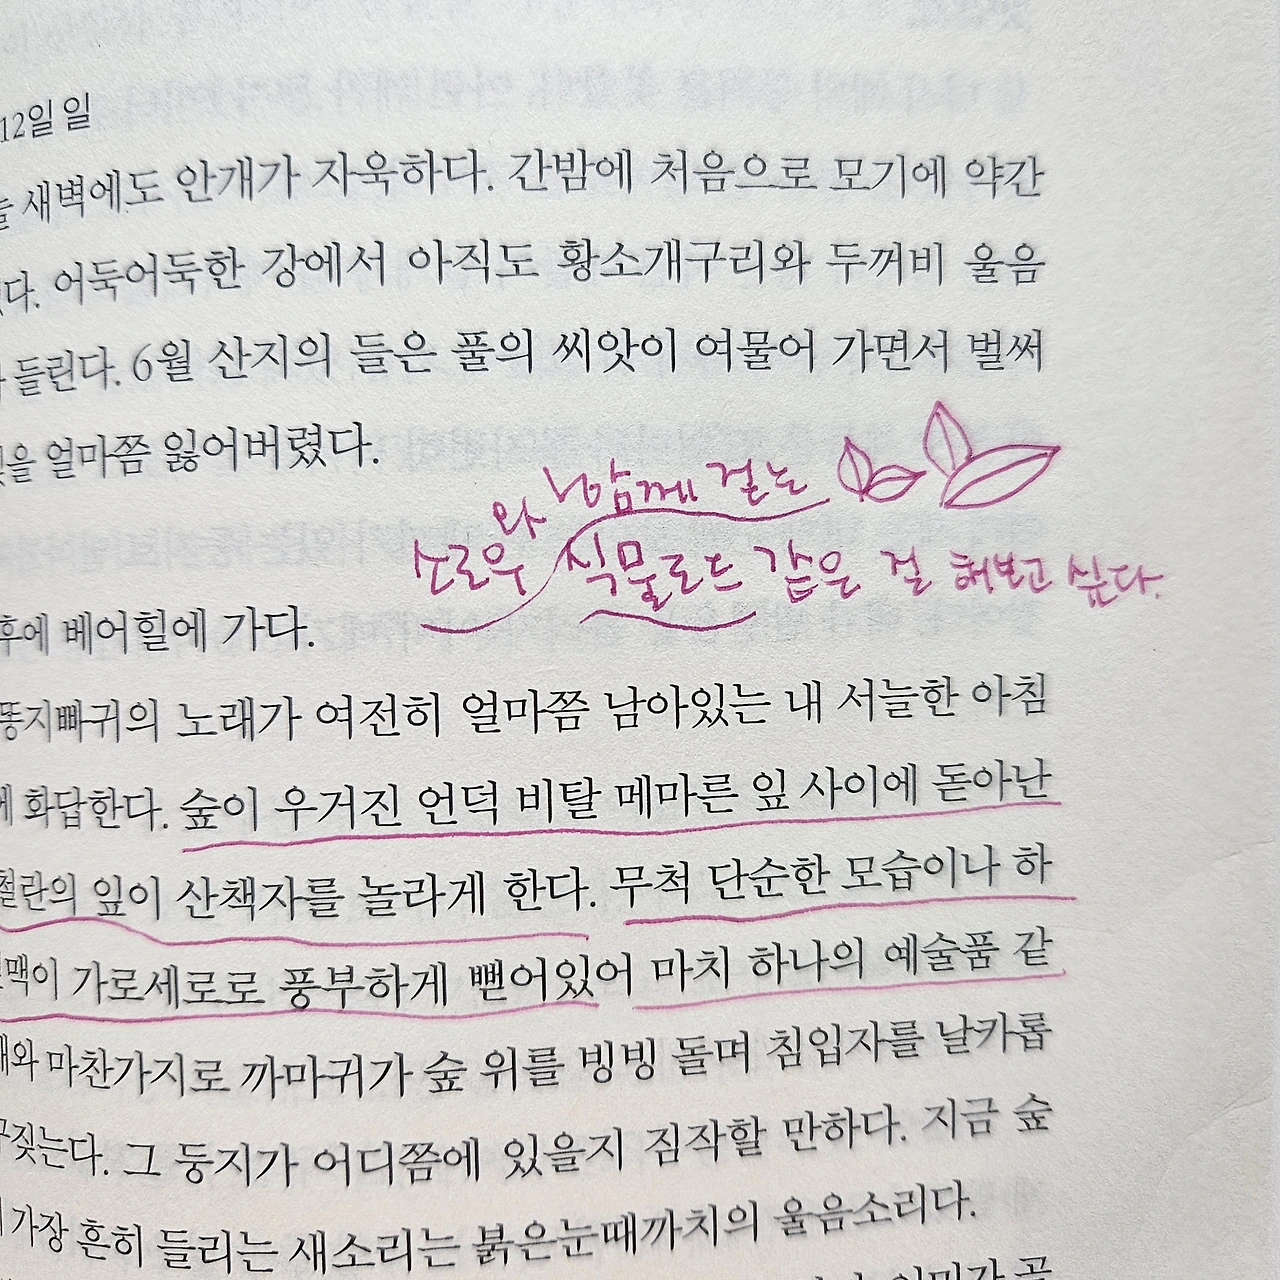 12일 일
새벽에도 안개가 자욱하다. 간밤에 처음으로 모기에 약간
다. 어둑어둑한 강에서 아직도 황소개구리와 두꺼비 울음
들린다. 6월 산지의 들은 풀의 씨앗이 여물어 가면서 벌써
을 얼마쯤 잃어버렸다.
와 함께 걷는
소로우 식물로드 같은 걸 해보고 싶다.
후에 베어힐에 가다.
똥지빠귀의 노래가 여전히 얼마쯤 남아있는 내 서늘한 아침
화답한다. 숲이 우거진 언덕 비탈 메마른 잎 사이에 돋아난
란의 잎이 산책자를 놀라게 한다. 무척 단순한 모습이나 하
맥이 가로세로로 풍부하게 뻗어있어 마치 하나의 예술품 같
와 마찬가지로 까마귀가 숲 위를 빙빙 돌며 침입자를 날카롭
짖는다. 그 둥지가 어디쯤에 있을지 짐작할 만하다. 지금 숲
가장 흔히 들리는 새소리는 붉은눈때까치의 울음소리다.